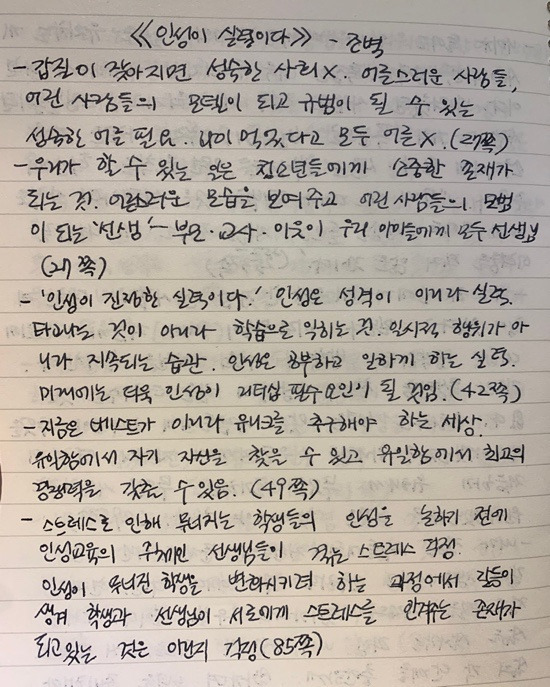 《인성이 실력이다》 - 조벽
- 갑질이 잦아지면 성숙한 사회 X. 어른스러운 사람들,
어린 사람들의 모델이 되고 규범이 될 수 있는
성숙한 어른 필요. 나이 먹었다고 모두 어른 X. (27쪽)
- 우리가 할 수 있는 일은 청소년들에게 소중한 존재가
되는 것. 어른스러운 모습을 보여주고 어린 사람들의 모범
이 되는 '선생' - 부모·교사·이웃이 우리 아이들에게 모두 선생님
(27쪽)
- '인성이 진정한 실력이다.' 인성은 성격이 아니라 실력.
타고나는 것이 아니라 학습으로 익히는 것. 일시적 행위가 아
니라 지속되는 습관. 인성은 공부하고 일하게 하는 실력.
미래에는 더욱 인성이 리더십 필수요인이 될 것임. (42쪽)
- 지금은 베스트가 아니라 유니크를 추구해야 하는 세상.
유일함에서 자기 자신을 찾을 수 있고 유일함에서 최고의
경쟁력을 갖출 수 있음. (49쪽)
- 스트레스로 인해 무너지는 학생들의 인성을 논하기 전에
인성교육의 주체인 선생님들이 겪는 스트레스 걱정.
인성이 무너진 학생을 변화시키려 하는 과정에서 갈등이
생겨 학생과 선생님이 서로에게 스트레스를 안겨주는 존재가
되고있는 것은 아닌지 걱정 (85쪽)